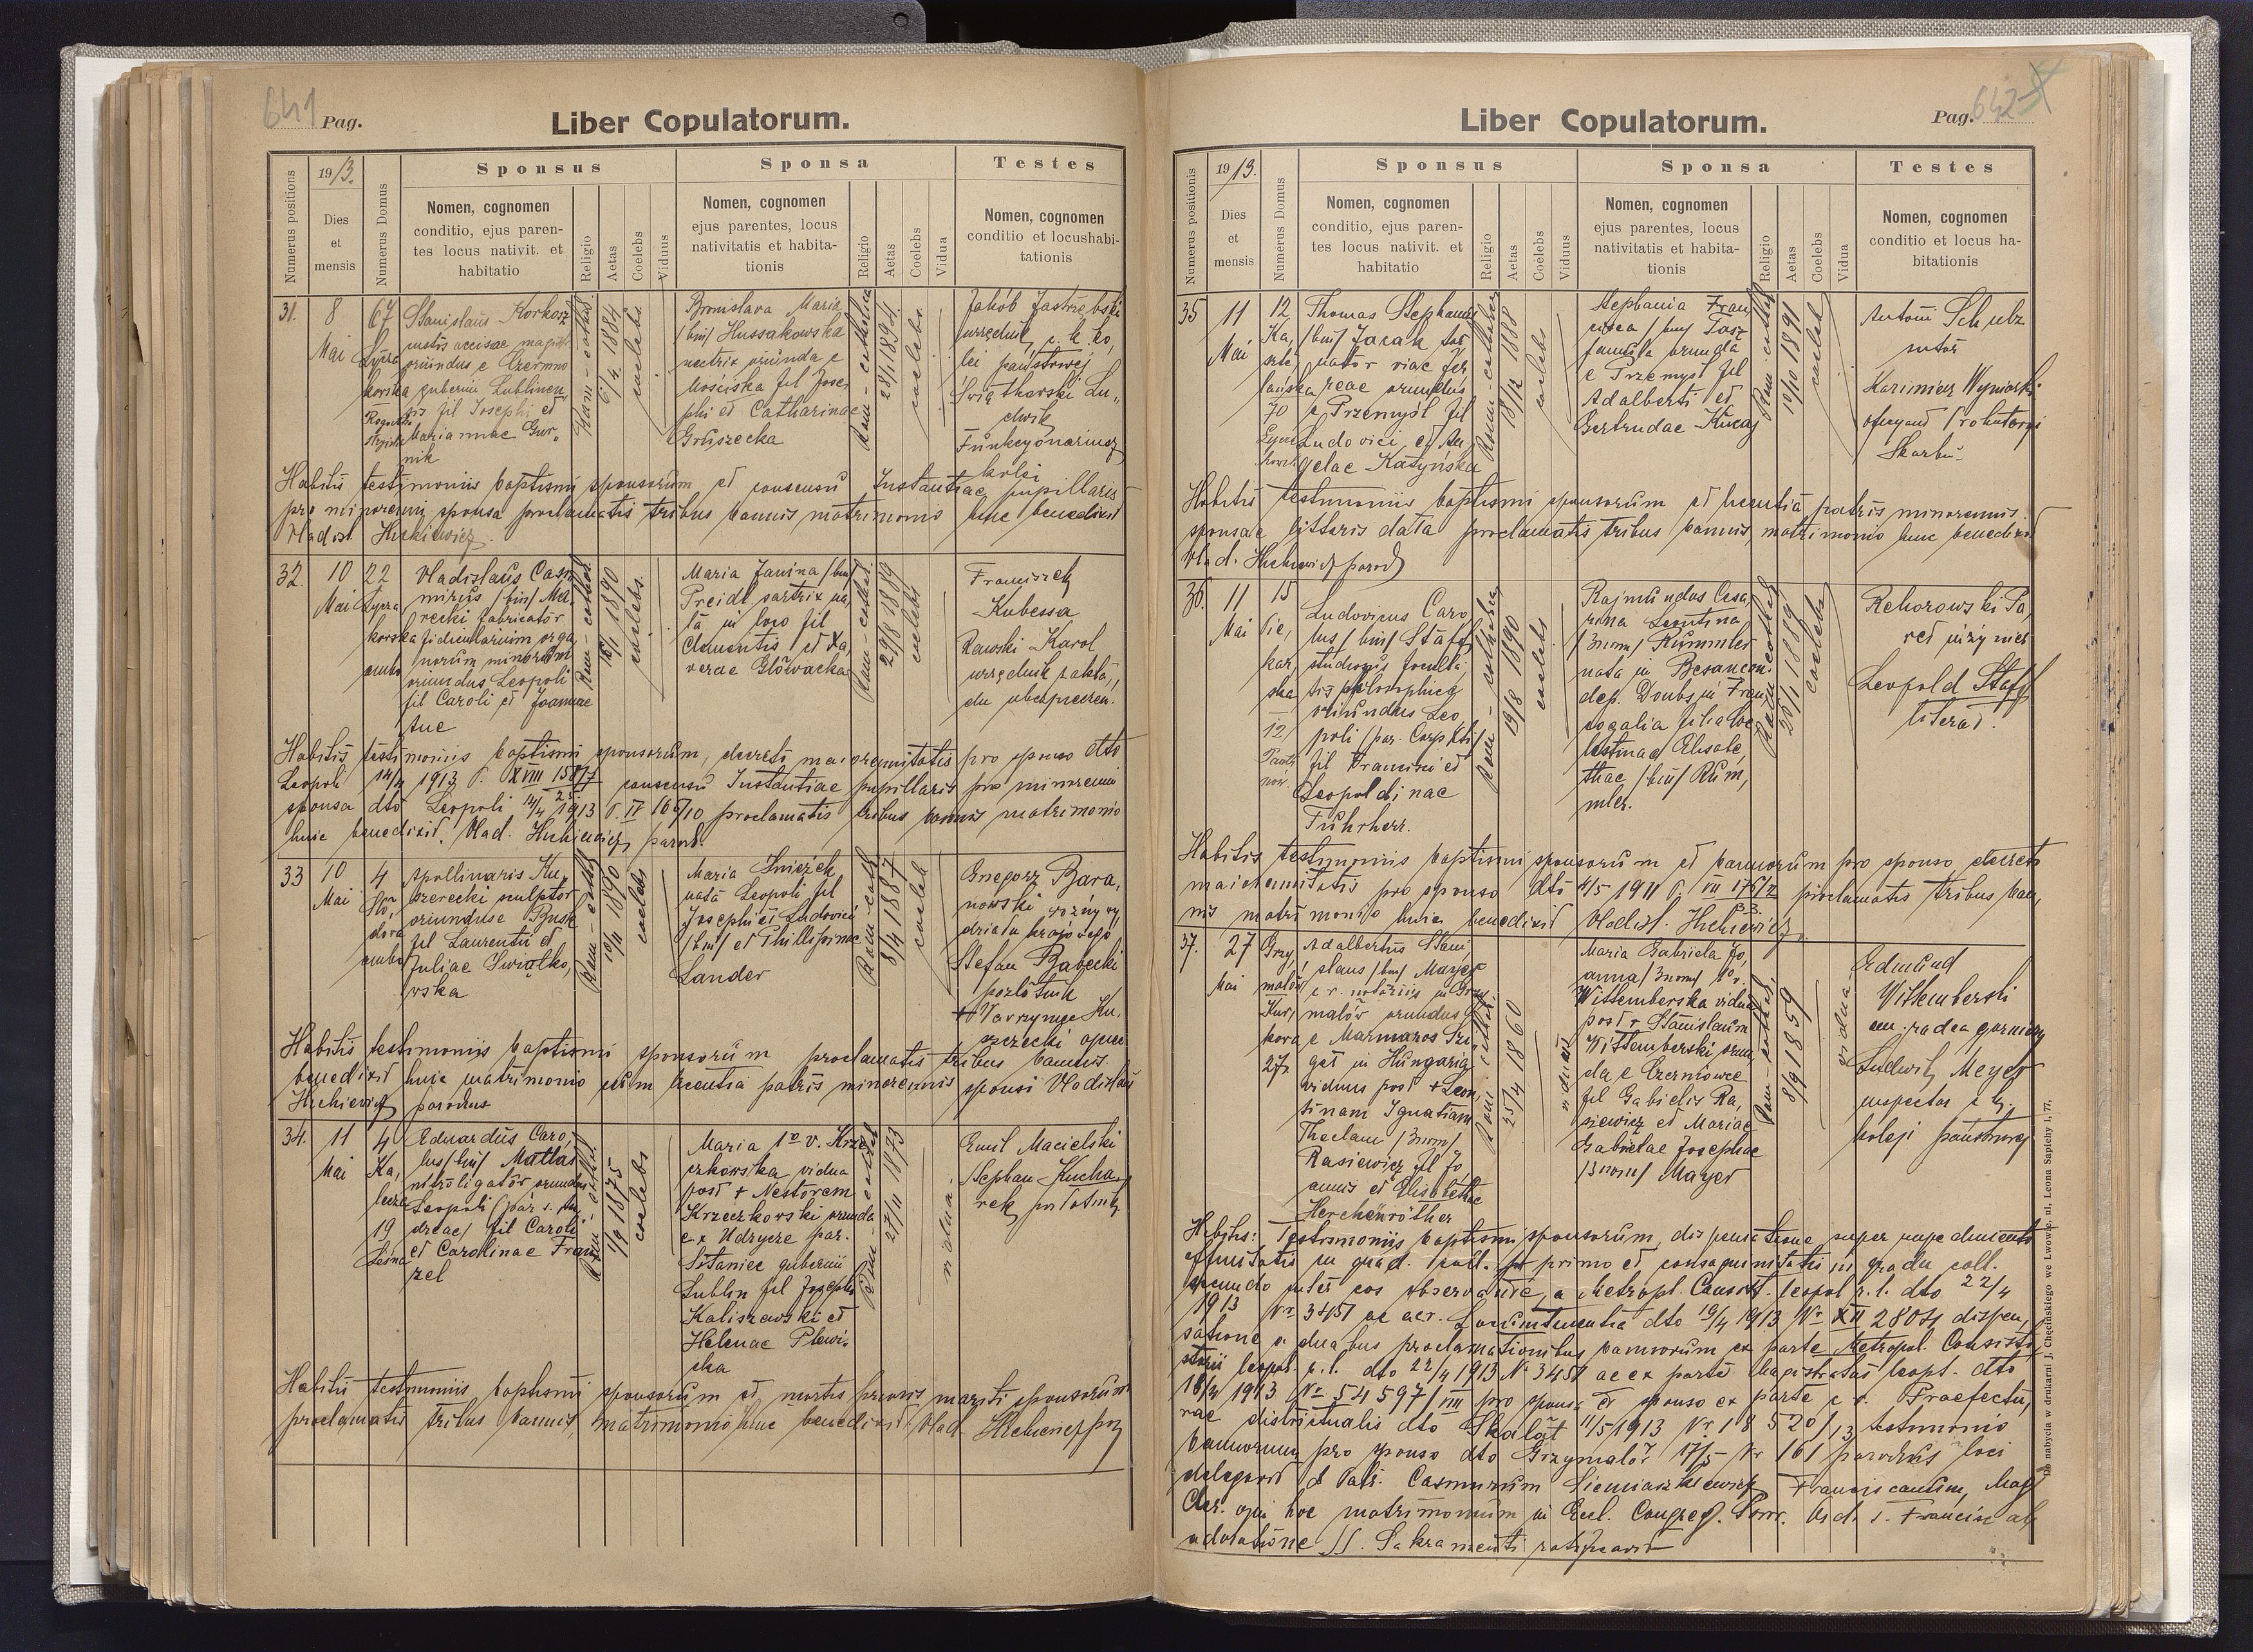 641 Pag.
Liber Copulatorum.
Numerus positionis
1913.
Dies
et
mensis
Numerus Domus
Sponsus
Nomen, cognomen
conditio, ejus paren-
tes locus nativit. et
habitatio
Religio
Aetas
Coelebs
Viduus
Sponsa
Nomen, cognomen
ejus parentes, locus
nativitatis et habita-
tionis
Religio
Aetas
Coelebs
Vidua
Testes
Nomen, cognomen
conditio et locus habi-
tationis
31.
8
Mai
67
Stanislaus
oriundus e Czermno
gubernii Lublinen
fil Josephi et
Mariannae Gur-
nik
Rom-cathol
6/4 1884
coelebs
Bronislava Maria
/bin/ Hussakowska
oriunda e
Mościska fil Jose
phi et Catharinae
Gruszecka
Rom-catholica
28/1 1894
coelebs
Jakób Jastrzębski
urzędnik c. k. ko,
lei państwowej
Lu,
dwik
Funkcyonariusz
kolei
Habitis testimoniis baptismi sponsorum et consensu Instantiae pupillaris
pro minorenni sponsa proclamatis tribus bannis matrimonio huic benedixit
Vladisl. Hickiewicz.
32.
10
Mai
22
Łycza
korska
ambo
Vladislaus Casi
mirus /bin/ Ma,
recki fabricator
orga
norum minorum
oriundus Leopoli
fil Caroli et Joannae
Rom-cathol
1890
coelebs
Maria Janina /bin/
Preidl sartrix na,
ta in loco fil
Clementis et Xa,
verae Głowacka
Rom-cathol
29/8 1889
coelebs
Franciszek
Kubessa
Karol
urzędnik zakła,
du ubezpieczeń.
Habitis testimoniis baptismi sponsorum, decreti maiorennitatis pro sponso dto
Leopoli 1913 consensu Instantiae pupillaris pro minorenni
sponsa dto Leopoli 14/4 1913 proclamatis tribus bannis matrimonio
huic benedixit. Vlad. paroch.
33
10
Mai
4
ambo
Apollinaris Ku,
szerecki sculptor
oriundus e Busk
fil Laurentii et
Juliae Swiątko,
wska
Rom-cathol
1890
coelebs
Maria Śnieżek
nata Leopoli fil
Josephi et Ludovici
/bin/ et Phillipinae
Lander
Rom-cath
8/4 1887
coelebs
Grzegorz Bara,
nowski
działu krajowego
Stefan Babecki
pozłotnik
Wawrzyniec Ku,
szerecki
Habitis testimoniis baptismi sponsorum proclamatis tribus bannis
benedixit huic matrimonio cum licentia patris minorennis sponsi Vladislaus
parochus
34.
11
Mai
4
Ka,
lecza
19
Leśna
Eduardus Caro,
lus /bin/ Matlas
introligator oriundus
Leopoli /par. s. An,
dreae/ fil Caroli
et Carolinae Fran
zel
1/9 1875
coelebs
Maria 1º v. Krze
czkowska vidua
post + Nestorem
Krzeczkowski oriunda
ex Udrycze par.
Sitaniec gubernii
Lublin fil Josephi
Kaliszewski et
Helenae Plewi,
cka
Rom-cathol
27/11 1873
vidua.
Emil Macielski
Stephan Kucha,
rek pozłotnik
Habitis testimoniis baptismi sponsorum et mortis prioris mariti sponsorum
proclamatis tribus bannis, matrimonio huic benedixit Vlad.
Liber Copulatorum.
Pag. 642
Numerus positionis
1913.
Dies
et
mensis
Numerus Domus
Sponsus
Nomen, cognomen
conditio, ejus paren-
tes locus nativit. et
habitatio
Religio
Aetas
Coelebs
Viduus
Sponsa
Nomen, cognomen
ejus parentes, locus
nativitatis et habita-
tionis
Religio
Aetas
Coelebs
Vidua
Testes
Nomen, cognomen
conditio et locus ha-
bitationis
35
11
Mai
12
70
Thomas Stephanus
/bin/ Jasak
viae fer
reae oriundus
e Przemyśl fil
Ludovici et An,
gelae Katyńska
Rom-catholica
18/12 1888
coelebs
Stephania Fran
cisca /bin/
famula oriunda
e Przemyśl fil
Adalberti et
Gertrudae
Rom-cathol
10/10 1891
coeleb
Antoni Schulz
sutor
Kazimierz
Skarbu
Habitis testimoniis baptismi sponsorum et licentia patris minorennis
sponsae litteris data proclamatis tribus bannis, matrimonio huic benedixit
Vlad. paroch
36.
11
Mai
15
Pie,
kar
ska
12
Ludovicus Caro
lus /bin/ Staff
studiosus facult,
tis philosophicae
oriundus Leo
poli
fil Francisci et
Leopoldinae
Führherr.
Rom-catholica
19/8 1890
coelebs
Rajmundas Cesa,
rina Leontina
/3 nom/ Rummler
nata in Besancon
dep. Doubs in Fran,
cogalia
Elisabe,
thae /bin/ Rum,
mler.
1889
coelebs
Rehorowski Ta,
Leopold Staff
literat.
Habitis testimoniis baptismi sponsorum et bannorum pro sponso decreto
maiorennitatis pro sponso dto 4/5 1911 proclamatis tribus ban,
nis matrimonio huic benedixit Vladisl.
37.
27
Mai
Grzy,
małów
27,
Adalbertus Stani,
slaus /bin/ Mayer
c. r. notarius in Grzy
małów oriundus
e Marmaros Szi
get in Hungaria
viduus post + Leon,
tinam Ignatiam
Theclam /3 nom/
Rasiewicz fil Jo,
annis et Elisabethae
Herchenröther
25/4 1860
viduus
Maria Gabriela Jo,
anna /3 nom/ 1º v.
Wittemberska vidua
post + Stanislaum
Wittemberski oriun
da e Czerniowce
fil Gabrielis Ra,
siewicz et Mariae
Gabrielae Josephae
/3 nom/ Mayer
Rom-cathol.
8/9 1859
vidua
Edmund
Wittemberski
em. radca górniczy
Ludwik Meyer
inspector c. k.
koleji państwowej
Habitis: Testimoniis baptismi sponsorum, dispensatione super impedimento
affinitatis in grad. coll. primo et consanguinitatis in gradu coll.
secundo inter eos a Metropl. Consist. leopol. r. l. dto 22/4
1913 Nr 3451 ac dto 19/4 1913 Nr XII dispen,
satione a duabus proclamationibus bannorum ex parte Metropol. Consisto,
rii leopol. r. l. dto 22/4 1913 N 3451 ac ex parte Magistratus leopol. dto
1913 Nr 54597/VIII pro sponsa et sponso ex parte c. r. Praefectu,
rae districtualis dto Skałat 11/5 1913 Nr 18520/13 testimonio
bannorum pro sponso dto Grzymałów 17/5 Nr 161 parochus loci
delegavit Patr. Casimirum Siemiaszkiewicz Franciscanum,
qui hoc matrimonium in Eccl. Congreg. Soror. Ord. S. Francisci ab
adoratione SS. Sakramenti ratificavit
Do nabycia w drukarni J. Chęcińskiego we Lwowie, ul. Leona Sapiehy l. 77.